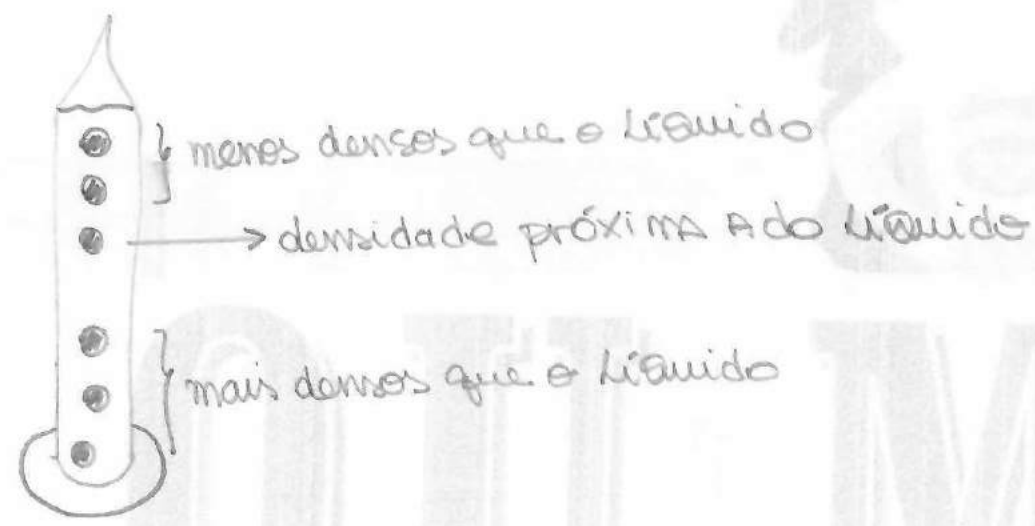 menos densos que o líquido
densidade próxima A do líquido
mais densos que o líquido